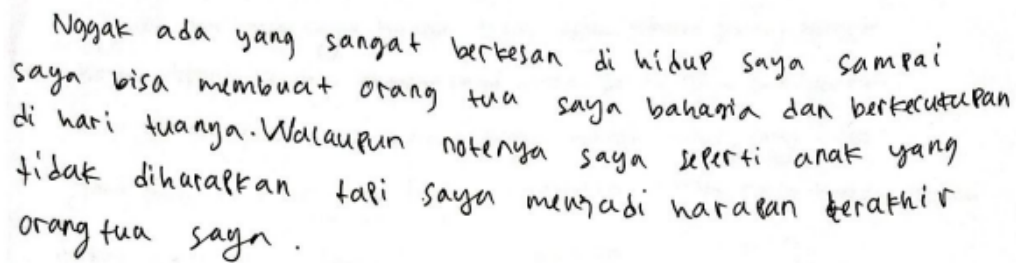 Nggak ada yang sangat berkesan di hidup saya sampai
saya bisa membuat orang tua saya bahagia dan berkecukupan
di hari tuanya. Walaupun notenya saya seperti anak yang
tidak diharapkan tapi saya menjadi harapan terakhir
orang tua saya.